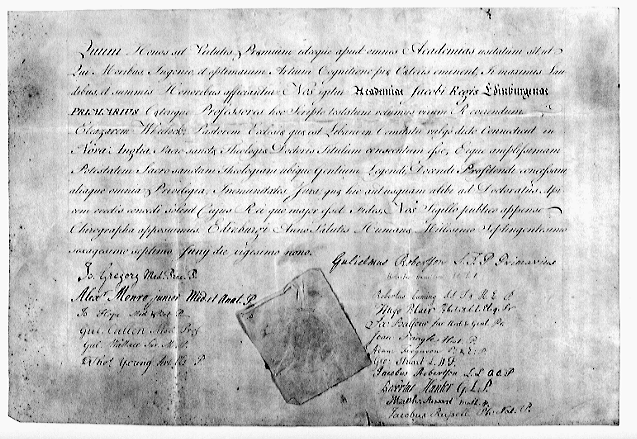 Quum Honos sit Virtutis Præmium idque apud omnes Academias usitatum est ut
Qui Moribus, Ingenio, et optimarum Artium Cognitione præ Cæteris eminent, Ii maximis Lau
dibus, et summis Honoribus afficiantur Nos igitur Academiæ Jacobi Regis Edinburgenæ
PRIMARIUS Cæterique Professores hoc Scripto testatum volumus virum Reverendum
Eleazarum Wheelock Pastorem Ecclesiæ quæ est Lebanon in Comitatu vulgo dicto Connecticut in
Nova Anglia, Sacro sanctæ Theologiæ Doctoris Titulum consecutum esse, Eique amplissimam
Potestatem Sacro sanctam Theologiam ubique Gentium Legendi Docendi Profitendi concessam
aliaque omnia Privilegia, Immunitates Jura, quæ hic aut usquam alibi ad Doctoratus Api
cem evectis concedi solent Cujus Rei quo major esset Fides, Nos Sigillo publico appenso
Chirographa apposuimus. Edinburgi Anno Salutis Humanæ Millesimo Septingentesimo
sexagesimo septimo Junij die vigesimo nono.
Gulielmus Robertson S.T.P Primarius
Jo. Gregory Med. Prac. P.
Alexr. Monro junior Med et Anat. P.
Jo Hope Med & Bot P.
Gul. Cullen Med. Prof
Gul. Wallace
Tho. Young P
Robertus Cuming
Hugo Blair
Joan Pringle
Adam Ferguson
Geo: Stuart
Jacobus Robertson L L O O P
Jacobus Russell Ph. Nat. P.